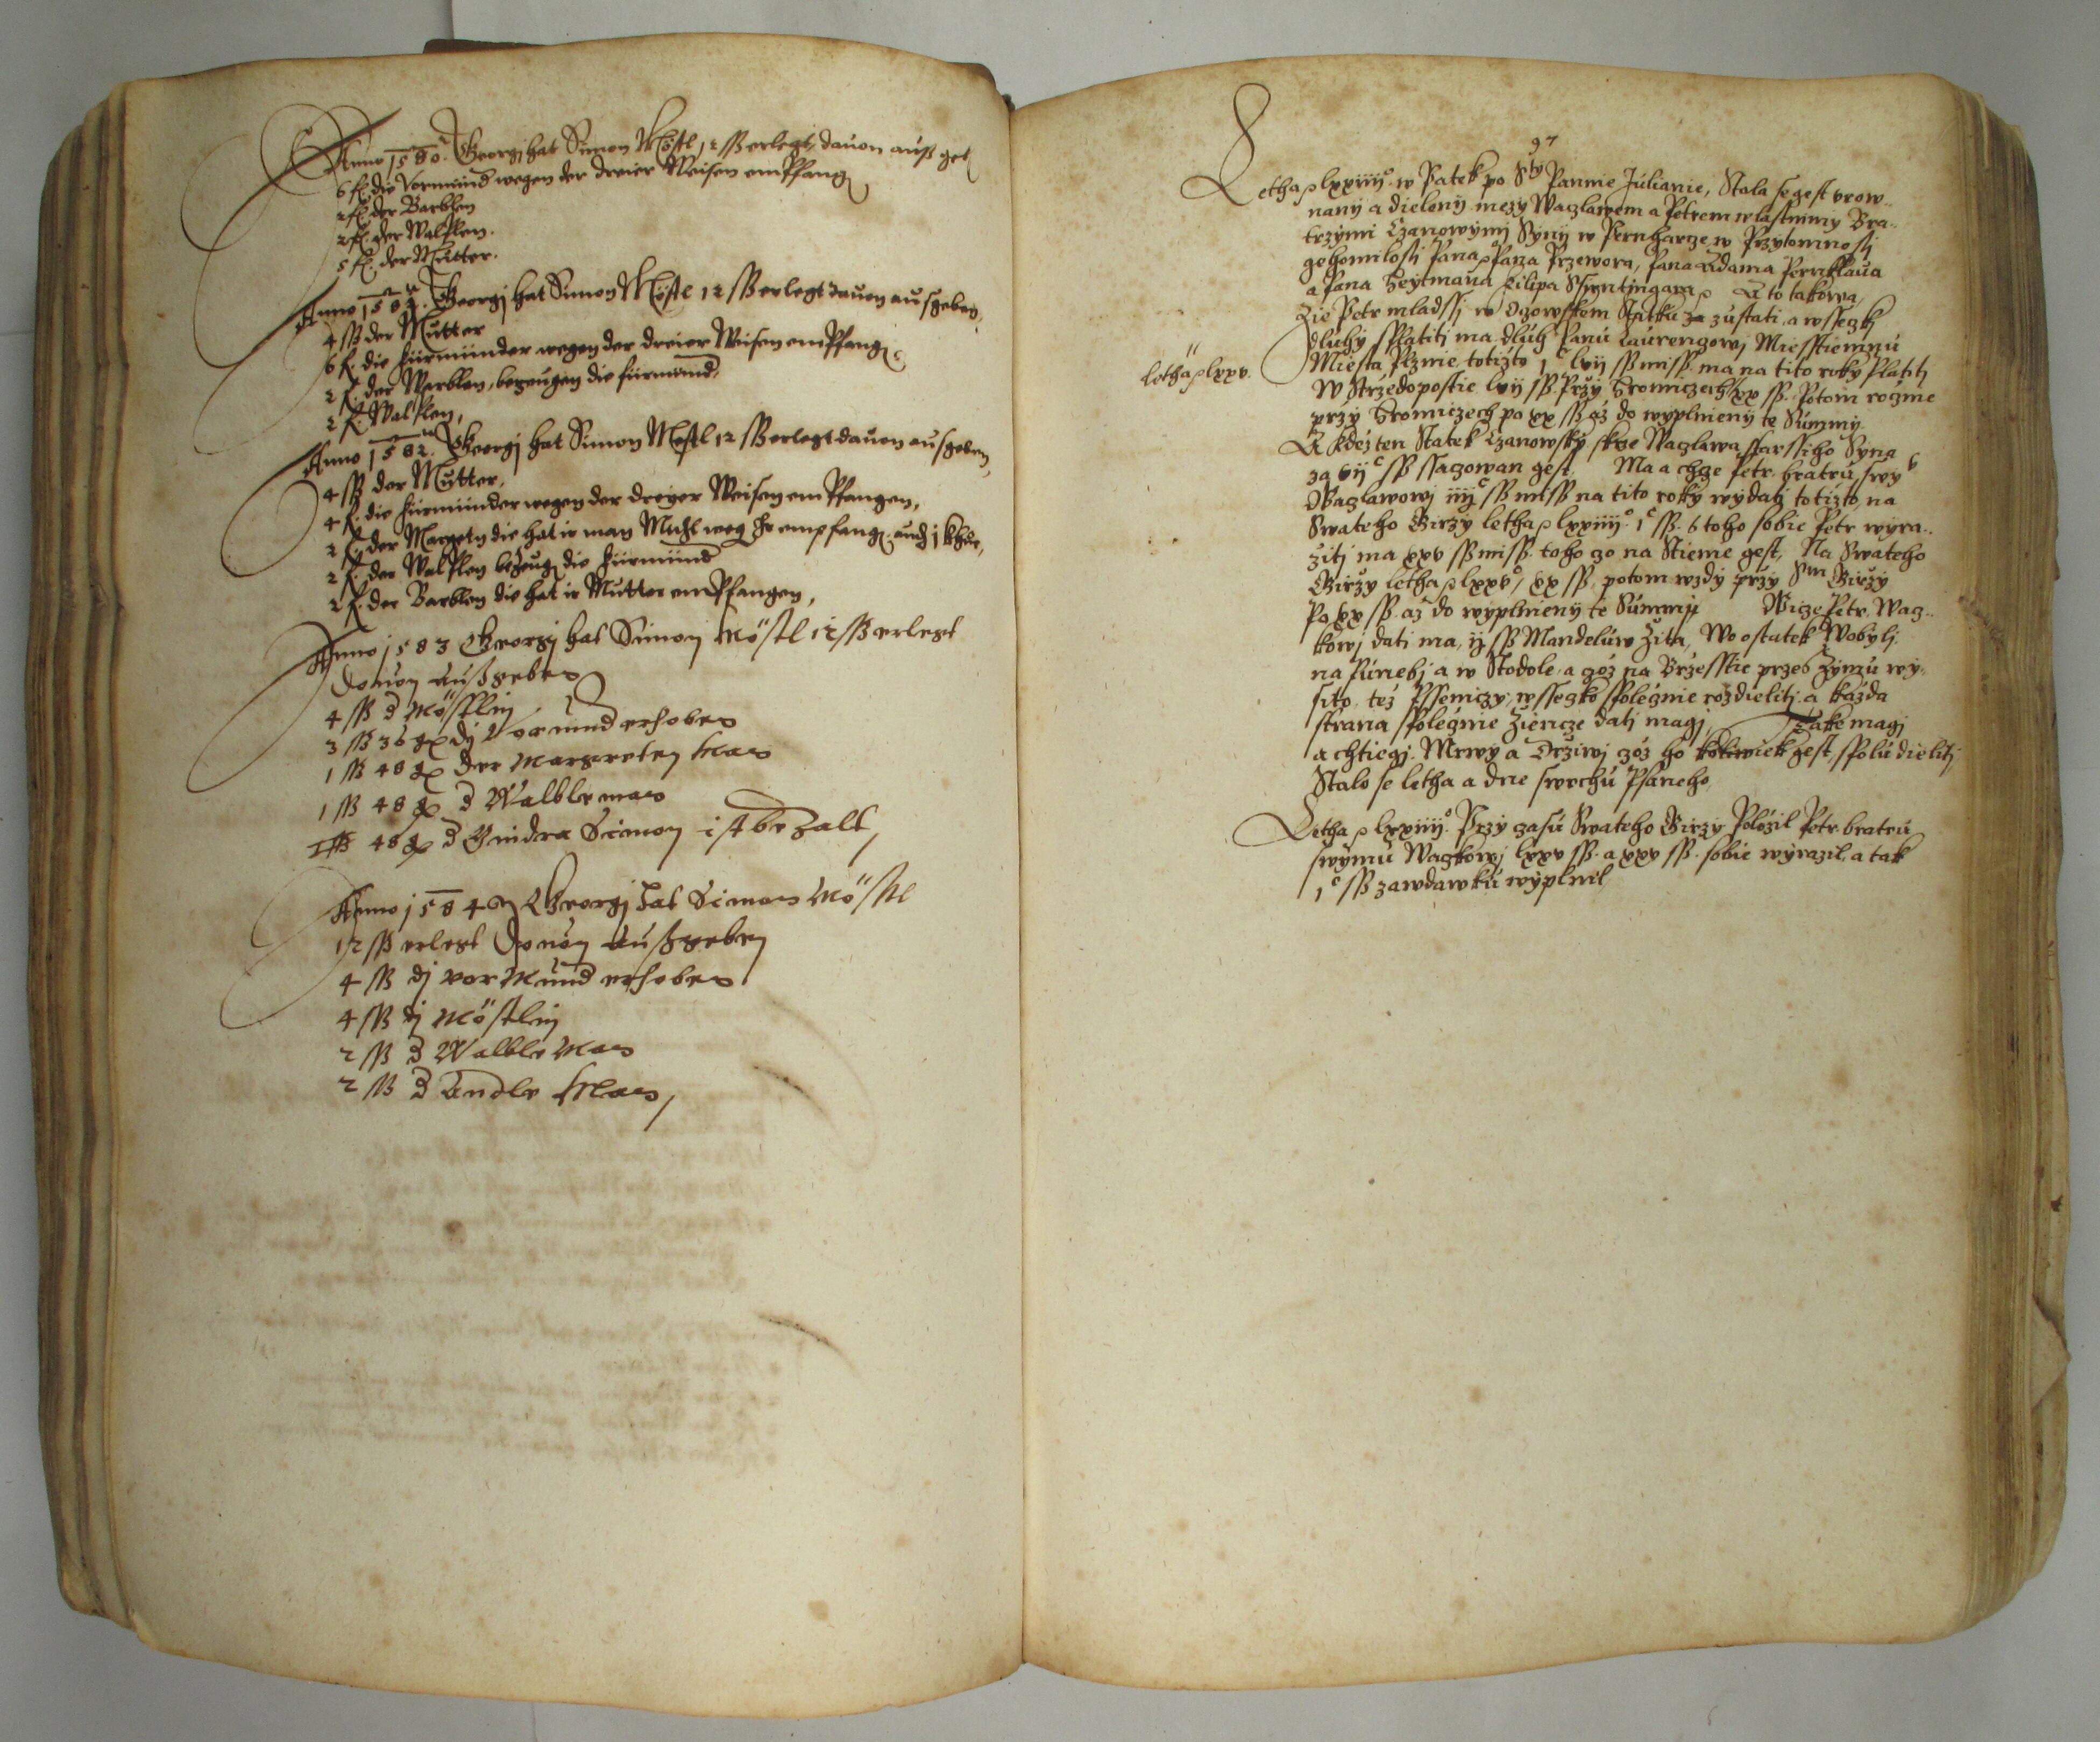 Anno 1580. Georgj hat Simon Möstl 12 ßß erlegt, dauon auß geb
6 fl. die Vormund wegen der dreier Weisen empfang
2 fl. der Barblen
2 fl. der Walplen.
5 fl. der Mutter.
Anno 1581. Georgj hat Simon Möstl 12 ßß erlegt dauon ausgeben,
4 ßß der Mutter
6 fl. die fürmünder wegen der dreier Weisen empfang
2 fl. der Warblen, bezeugen die fürmund,
2 fl. Walplen,
Anno 1582. Georgj hat Simon Mestl 12 ßß erlegt dauon ausgeben,
4 ßß der Mutter,
4 fl. die fürmünder wegen der dreyer Weisen empfangen,
2 fl. der Margetn die hat ir man Michl weg ihr empfang. auch j khue,
2 fl. der Walplen bezeug die fürmünd
2 fl. der Barblen die hat ir Mutter empfangen,
Anno 1583 Georgj hat Simon Möstl 12 ßß erlegt
douon außgeben
4 ßß d Möstlin
3 ßß 36 g dj Vormund erhoben
1 ßß 48 g der Margreten man
1 ßß 48 g d Walble man
48 g d Simon ist bezalt,
Anno 1584 Georgj hat Siman Möstl
12 ßß erlegt douon außgeben
4 ßß dj vormund erhoben
4 ßß dj Möstlin
2 ßß d Walble Man
2 ßß d Andle Man,
97
Letha lxxiiij° w Patek po Sty Pannie Julianie, Stala se gest vrow
nany a dieleny mezy Waczlawem a Petrem wlastnimy Bra
trzymi Czanowymi Syny w Pernharcze w Przytomnosti
gehomilosti Pana Pana Przewora, Pana Adama Pernklaua
a Pana Heytmana Filipa A to takowa,
Zie Petr mladssj w Oczowskem Statku za zustati, a wsseczky
Dluhy splatiti ma, dluh Panu Laurengowj Miesstieninu
letha lxxv.
Miesta Plznie, totizto 1c lvij ßß miß. ma na tito roky Platiti
W Strzedopostie lvij ßß. Przy Hromiczech xx ßß. Potom rocznie
przy Hromiczech po xx ßß. az do wyplnieny te Summy.
A kdez ten Statek Czanowsky skrze Waczlawa starssiho Syna
za vijc ßß ssaczowan gest, Ma a chcze Petr bratru swy
Waczlawowj iiijc ßß miß na tito roky wydati totizto, na
Swateho Girzy letha lxxiiij° 1c ßß. toho sobie Petr wyra
ziti ma xxv ßß miß. toho czo na Stieme gest, Na Swateho
Girzy letha lxxv°, xx ßß. potom wzdy przy Sm Girzy
Po xx ßß. az do wyplnieny te Summy Wicze Petr Wacz
kowj dati ma, ij ßß Mandeluw Zita, Wo ostatek Wobylj
na Ssunebj a w Stodole, a czoz na Brzesstie przes Zymu wy
sito, tez Pssenicze, wsseczko spolegnie rozdieliti, a kazda
strana spolegnie Ziencze dati magj, Take magj
a chtiegj. Mrwy a Drziwj czoz ho kolwiek gest, spolu dieliti,
Stalo se letha a dne swrchu Psaneho,
Letha lxxiiij° Przy czasu Swateho Girzy Polozil Petr bratru
swymu Waczkowj lxxv ßß. a xxv ßß. sobie wyrazil, a tak
1c ßß zawdawku wyplnil